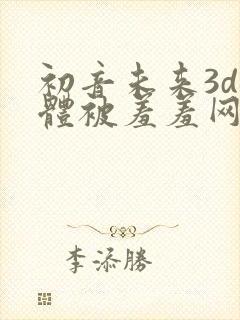 初音未来3d
體被羞羞网
李添勝